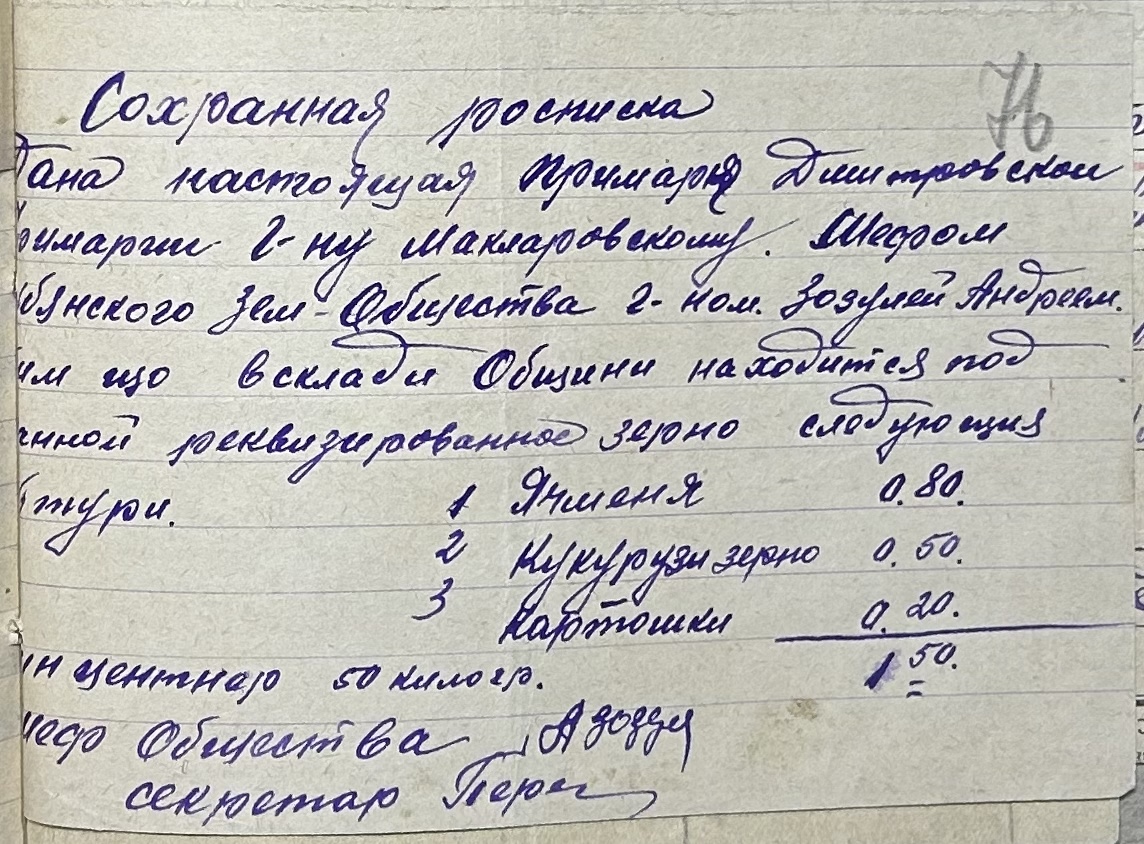 76
Сохранная росписка
Дана настоящая Примарю Дмитровской
римарии г-ну Макларовскому. Шефом
бянского Зем-Общества г-ном. Зозулей Андреем.
им що в склади Общини находится под
нной реквизированное зерно следующия
тури. 1 Ячменя 0.80.
2 Кукурузи зерно 0.50.
3 Картошки 0.20.
ин центнар 50 килогр. 1 50.
шеф Общества А Зозуля
секретар